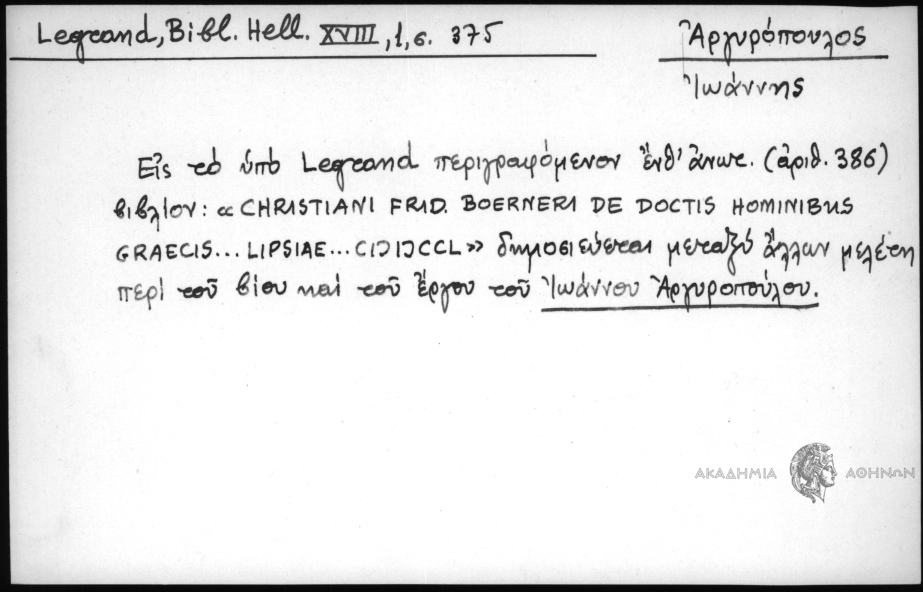 Legrand, Bibl. Hell. XVIII, 1, σ. 375
Ἀργυρόπουλος
Ἰωάννης
Εἰς τό ὑπό Legrand περιγραφόμενον ἔνθ' ἄνωτ. (ἀριθ. 386)
βιβλίον: « CHRISTIANI FRID. BOERNERI DE DOCTIS HOMINIBUS
GRAECIS... LIPSIAE... CIƆIƆCCL» δημοσιεύεται μεταξύ ἄλλων μελέτη
περί τοῦ βίου καί τοῦ ἔργου τοῦ Ἰωάννου Ἀργυροπούλου.
ΑΚΑΔΗΜΙΑ ΑΘΗΝΩΝ